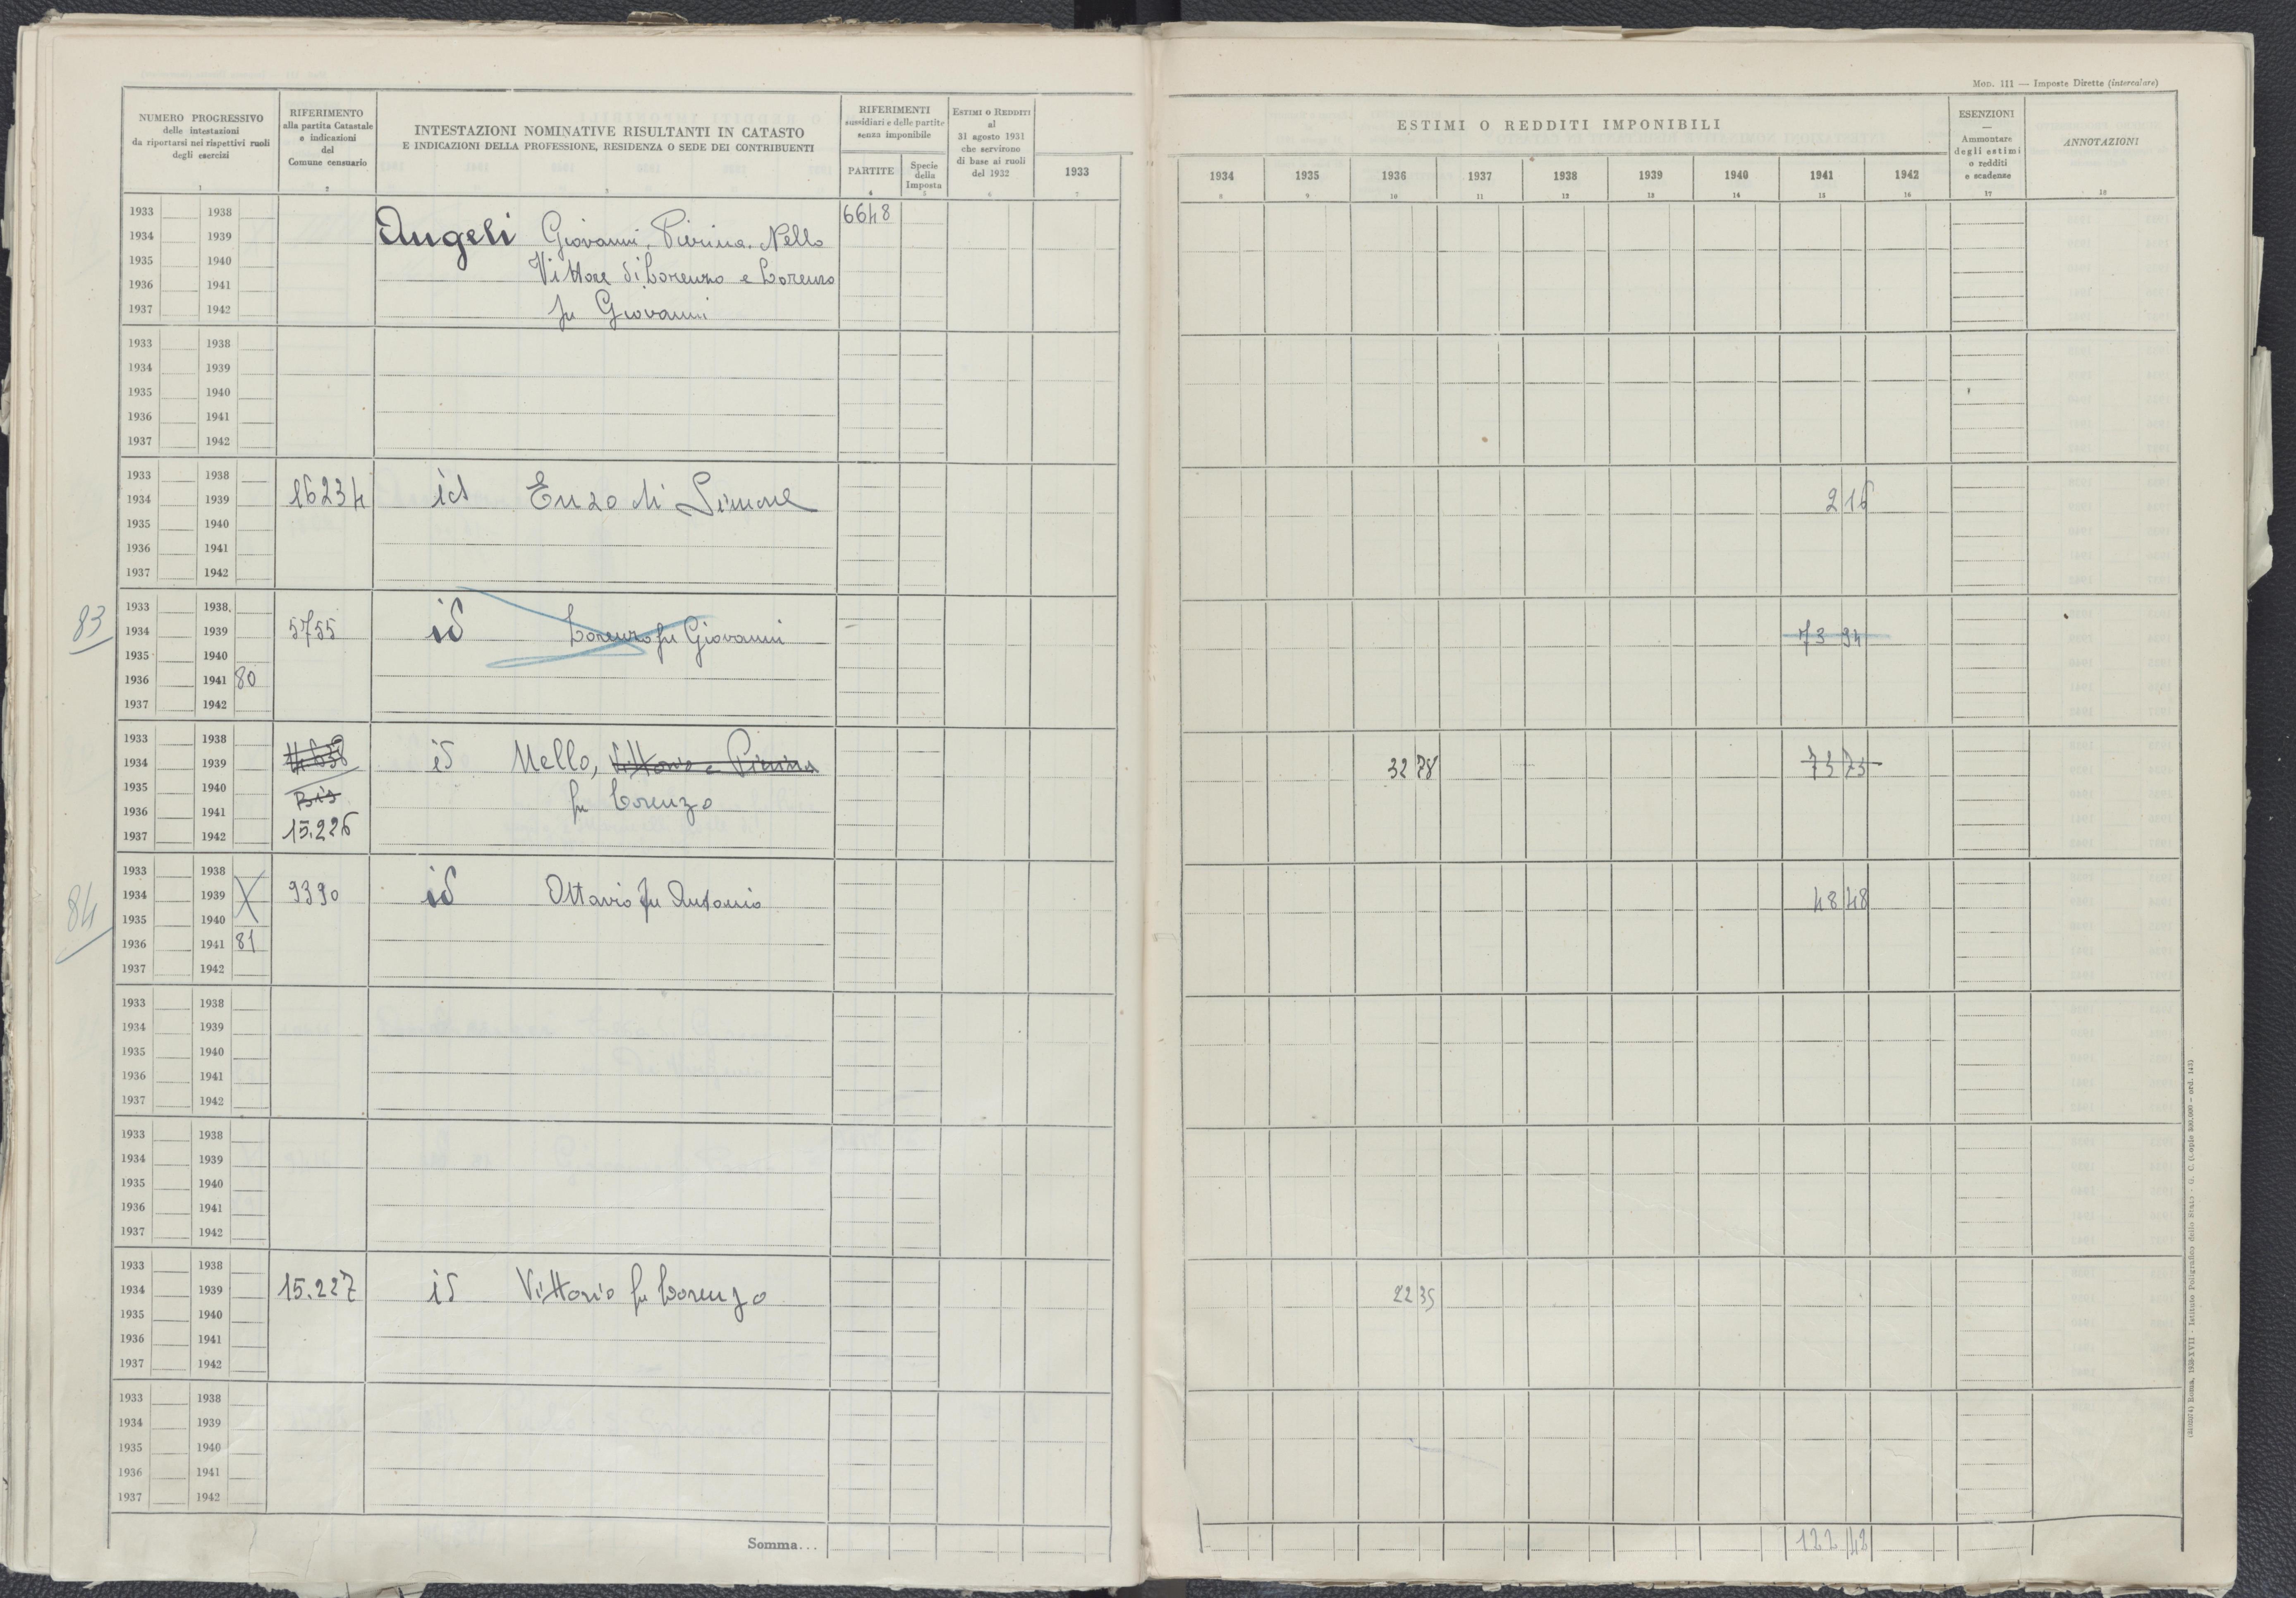 Mod. 111 — Imposte Dirette (intercalare)
NUMERO PROGRESSIVO
delle intestazioni
da riportarsi nei rispettivi ruoli
degli esercizi
1
RIFERIMENTO
alla partita Catastale
o indicazioni
del
Comune censuario
2
INTESTAZIONI NOMINATIVE RISULTANTI IN CATASTO
E INDICAZIONI DELLA PROFESSIONE, RESIDENZA O SEDE DEI CONTRIBUENTI
3
RIFERIMENTI
sussidiari e delle partite
senza imponibile
PARTITE
4
Specie
della
Imposta
5
Estimi o Redditi
al
31 agosto 1931
che servirono
di base ai ruoli
del 1932
6
1933
7
ESTIMI O REDDITI IMPONIBILI
1934 1935 1936 1937 1938 1939 1940 1941 1942
8 9 10 11 12 13 14 15 16
ESENZIONI
—
Ammontare
degli estimi
o redditi
e scadenze
17
ANNOTAZIONI
18
1933 1938 6648
1934 1939 Angeli Giovanni, Pierina, Nello
1935 1940 Vittore di Lorenzo e Lorenzo
1936 1941
1937 1942 fu Giovanni
1933 1938
1934 1939
1935 1940
1936 1941
1937 1942
1933 1938
1934 1939 16234 id Enzo di Simone 2 16
1935 1940
1936 1941
1937 1942
1933 1938
83 1934 1939 5755 id Lorenzo fu Giovanni 73 94
1935 1940
1936 1941 80
1937 1942
1933 1938
1934 1939 id Nello, Vittorio e Pierina 32 78 73 73
1935 1940 Bis fu Lorenzo
1936 1941
1937 1942 15.226
1933 1938
84 1934 1939 X 9390 id Ottavio fu Antonio 48 48
1935 1940
1936 1941 81
1937 1942
1933 1938
1934 1939
1935 1940
1936 1941
1937 1942
1933 1938
1934 1939
1935 1940
1936 1941
1937 1942
1933 1938
1934 1939 15.227 id Vittorio fu Lorenzo 22 35
1935 1940
1936 1941
1937 1942
1933 1938
1934 1939
1935 1940
1936 1941
1937 1942
Somma... 122 42
Roma, 1939-XVII - Istituto Poligrafico dello Stato - G. C. (Copie 300.000 - ord. 143)